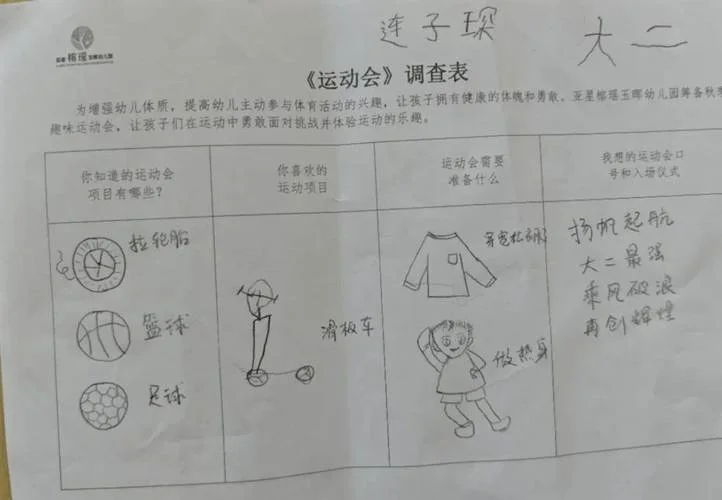 连子琛 大二
亚星榕瑶玉晖幼儿园
《运动会》调查表
为增强幼儿体质，提高幼儿主动参与体育活动的兴趣，让孩子拥有健康的体魄和勇敢。亚星榕瑶玉晖幼儿园筹备秋季
趣味运动会，让孩子们在运动中勇敢面对挑战并体验运动的乐趣。
你知道的运动会
项目有哪些？
你喜欢的
运动项目
运动会需要
准备什么
我想的运动会口
号和入场仪式
拉轮胎
篮球
足球
滑板车
穿宽松衣服
做热身
扬帆起航
大二最强
乘风破浪
再创辉煌